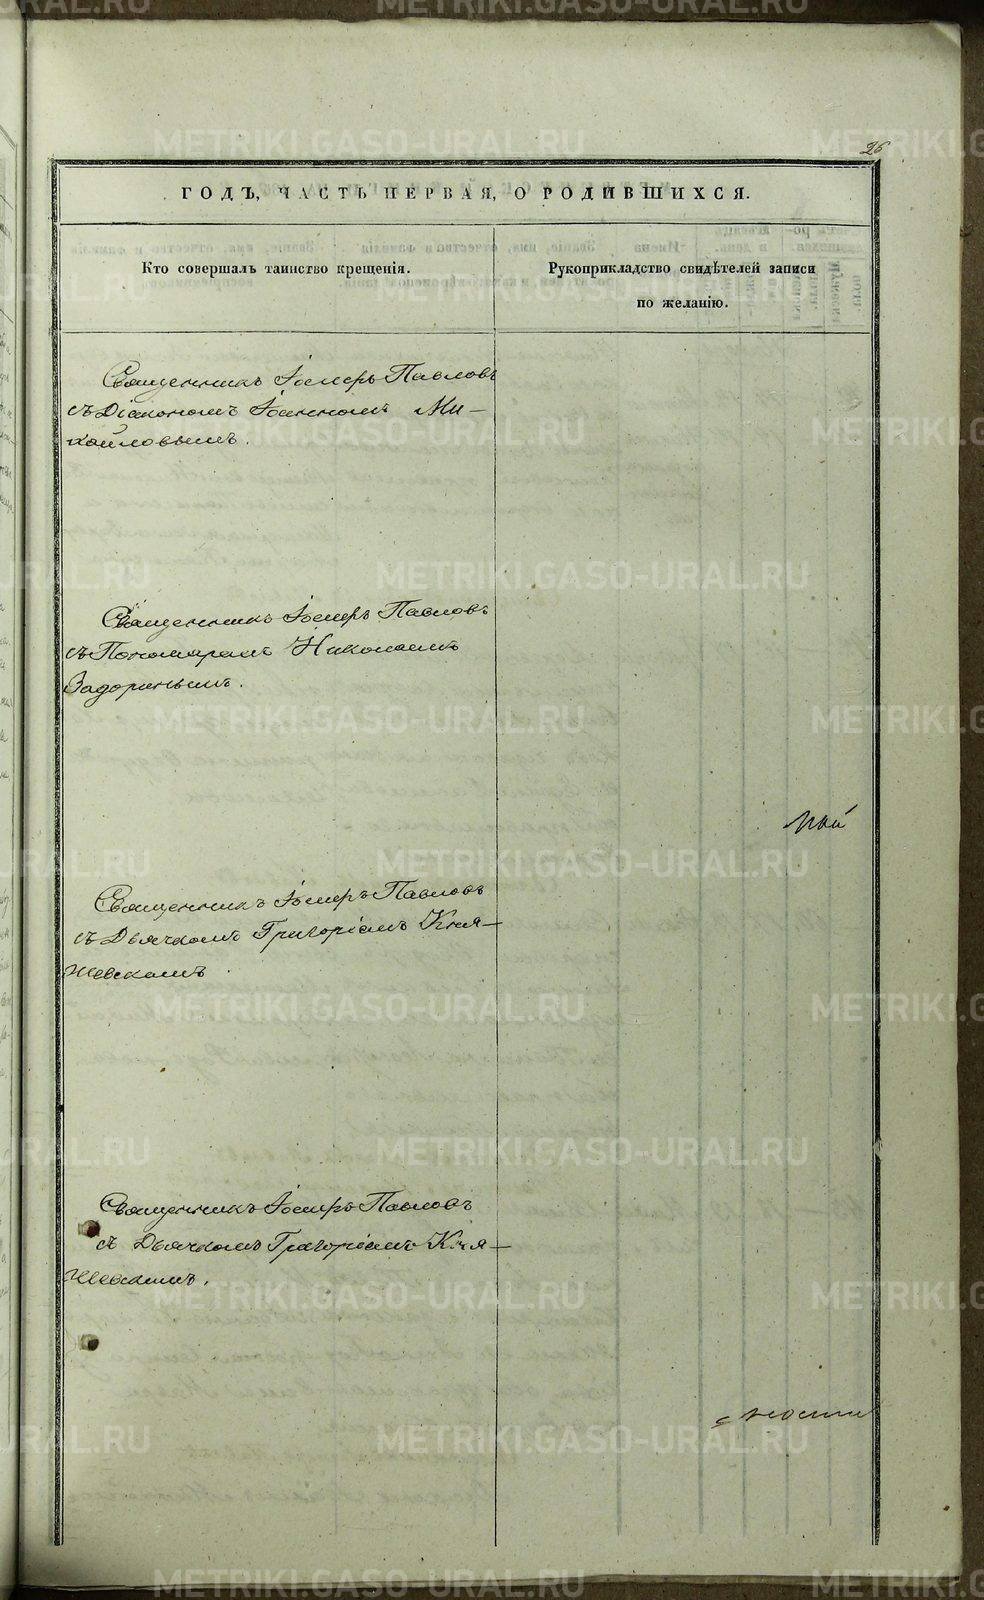 26
ГОДЪ, ЧАСТЬ ПЕРВАЯ, О РОДИВШИХСЯ.
Кто совершалъ таинство крещенія.
Рукоприкладство свидѣтелей записи
по желанію.
Священникъ Іосифъ Павловъ
съ Діакономъ Іоанномъ Ми–
хайловымъ.
Священникъ Іосифъ Павловъ
съ Пономаремъ Николаемъ
Задоринымъ.
Священникъ Іосифъ Павловъ
съ Дьячкомъ Григоріемъ Кня–
жевскимъ
Священникъ Іосифъ Павловъ
съ Дьячкомъ Григоріемъ Кня–
жевскимъ.
METRIKI.GASO-URAL.RU